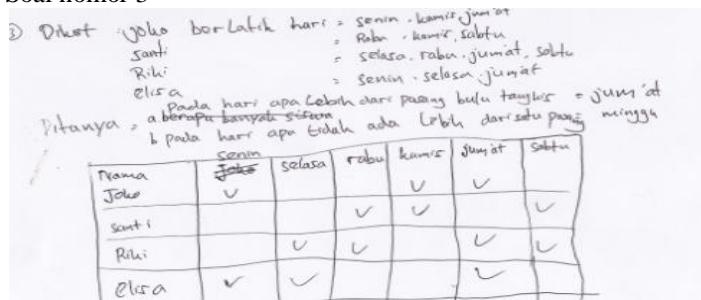 Soal nomor 3
③ Diket Joko berlatih hari = senin . kamis, jum'at
Santi = Rabu . kamis, sabtu
Riki = selasa, rabu . jum'at, sabtu
elisa = senin . selasa . jum'at
Ditanya = a. Pada hari apa lebih dari pasang bulu tangkis = jum'at
b pada hari apa tidak ada lebih dari satu pasang minggu
Nama senin selasa rabu kamis jum'at sabtu
Joko v v v
santi v v v
Riki v v v v
elisa v v v